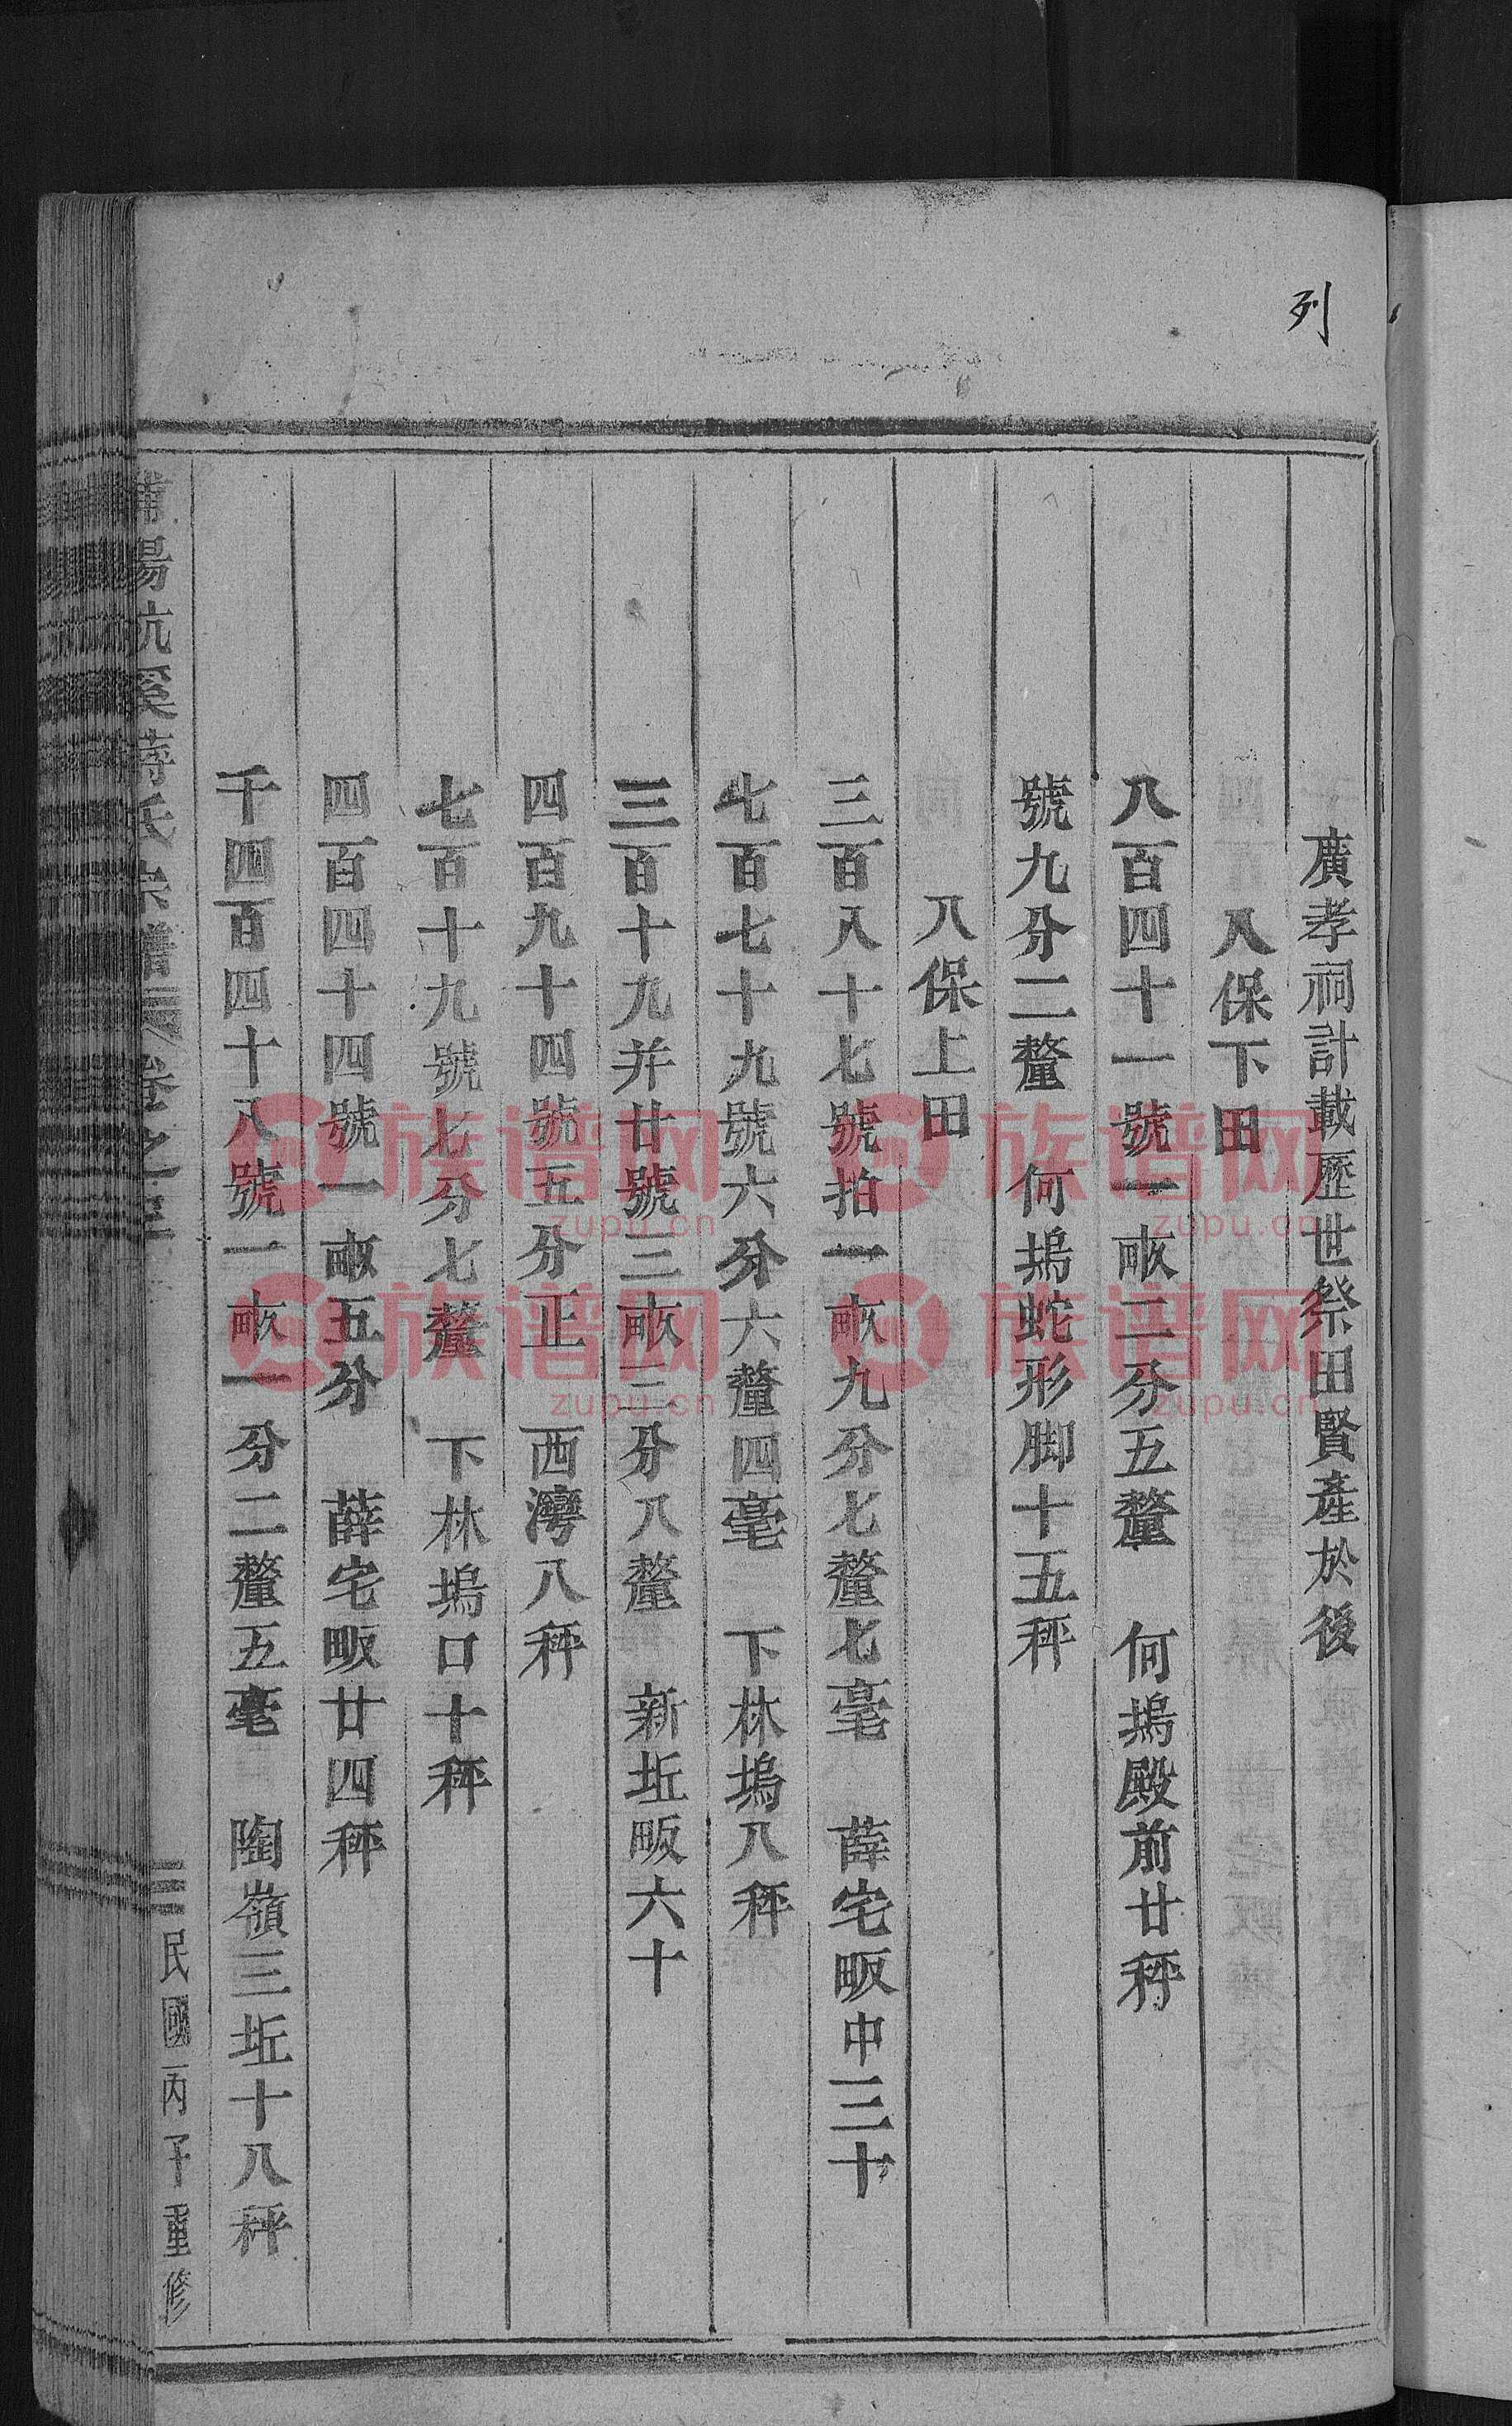 列
廣孝祠計載歷世祭田賢產於後
八保下田
八百四十一號一畝二分五釐　何塢殿前廿秤
號九分二釐　何塢蛇形脚十五秤
八保上田
三百八十七號拍一畝九分七釐七毫　薛宅畈中三十
七百七十九號六分六釐四毫　下林塢八秤
三百十九并廿號三畝三分八釐　新坵畈六十
四百九十四號五分正　西灣八秤
七百十九號七分七釐　下林塢口十秤
四百四十四號一畝五分　薛宅畈廿四秤
千四百四十八號一畝一分二釐五毫　陶嶺三坵十八秤
陽杭溪蔣氏宗譜　卷之
民國丙子重修
族谱网
zupu.cn
族谱网
zupu.cn
族谱网
zupu.cn
族谱网
zupu.cn